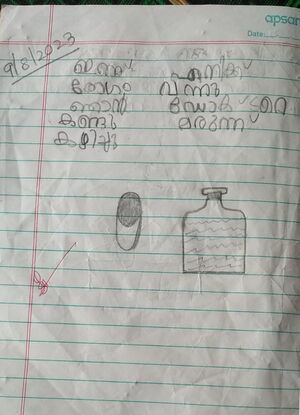 apsar
Date:
9/8/2023
ഇന്ന് എനിക്ക്
രോഗം വന്നു
ഞാൻ ഡോക്ടറെ
കണ്ടു മരുന്ന്
കഴിച്ചു